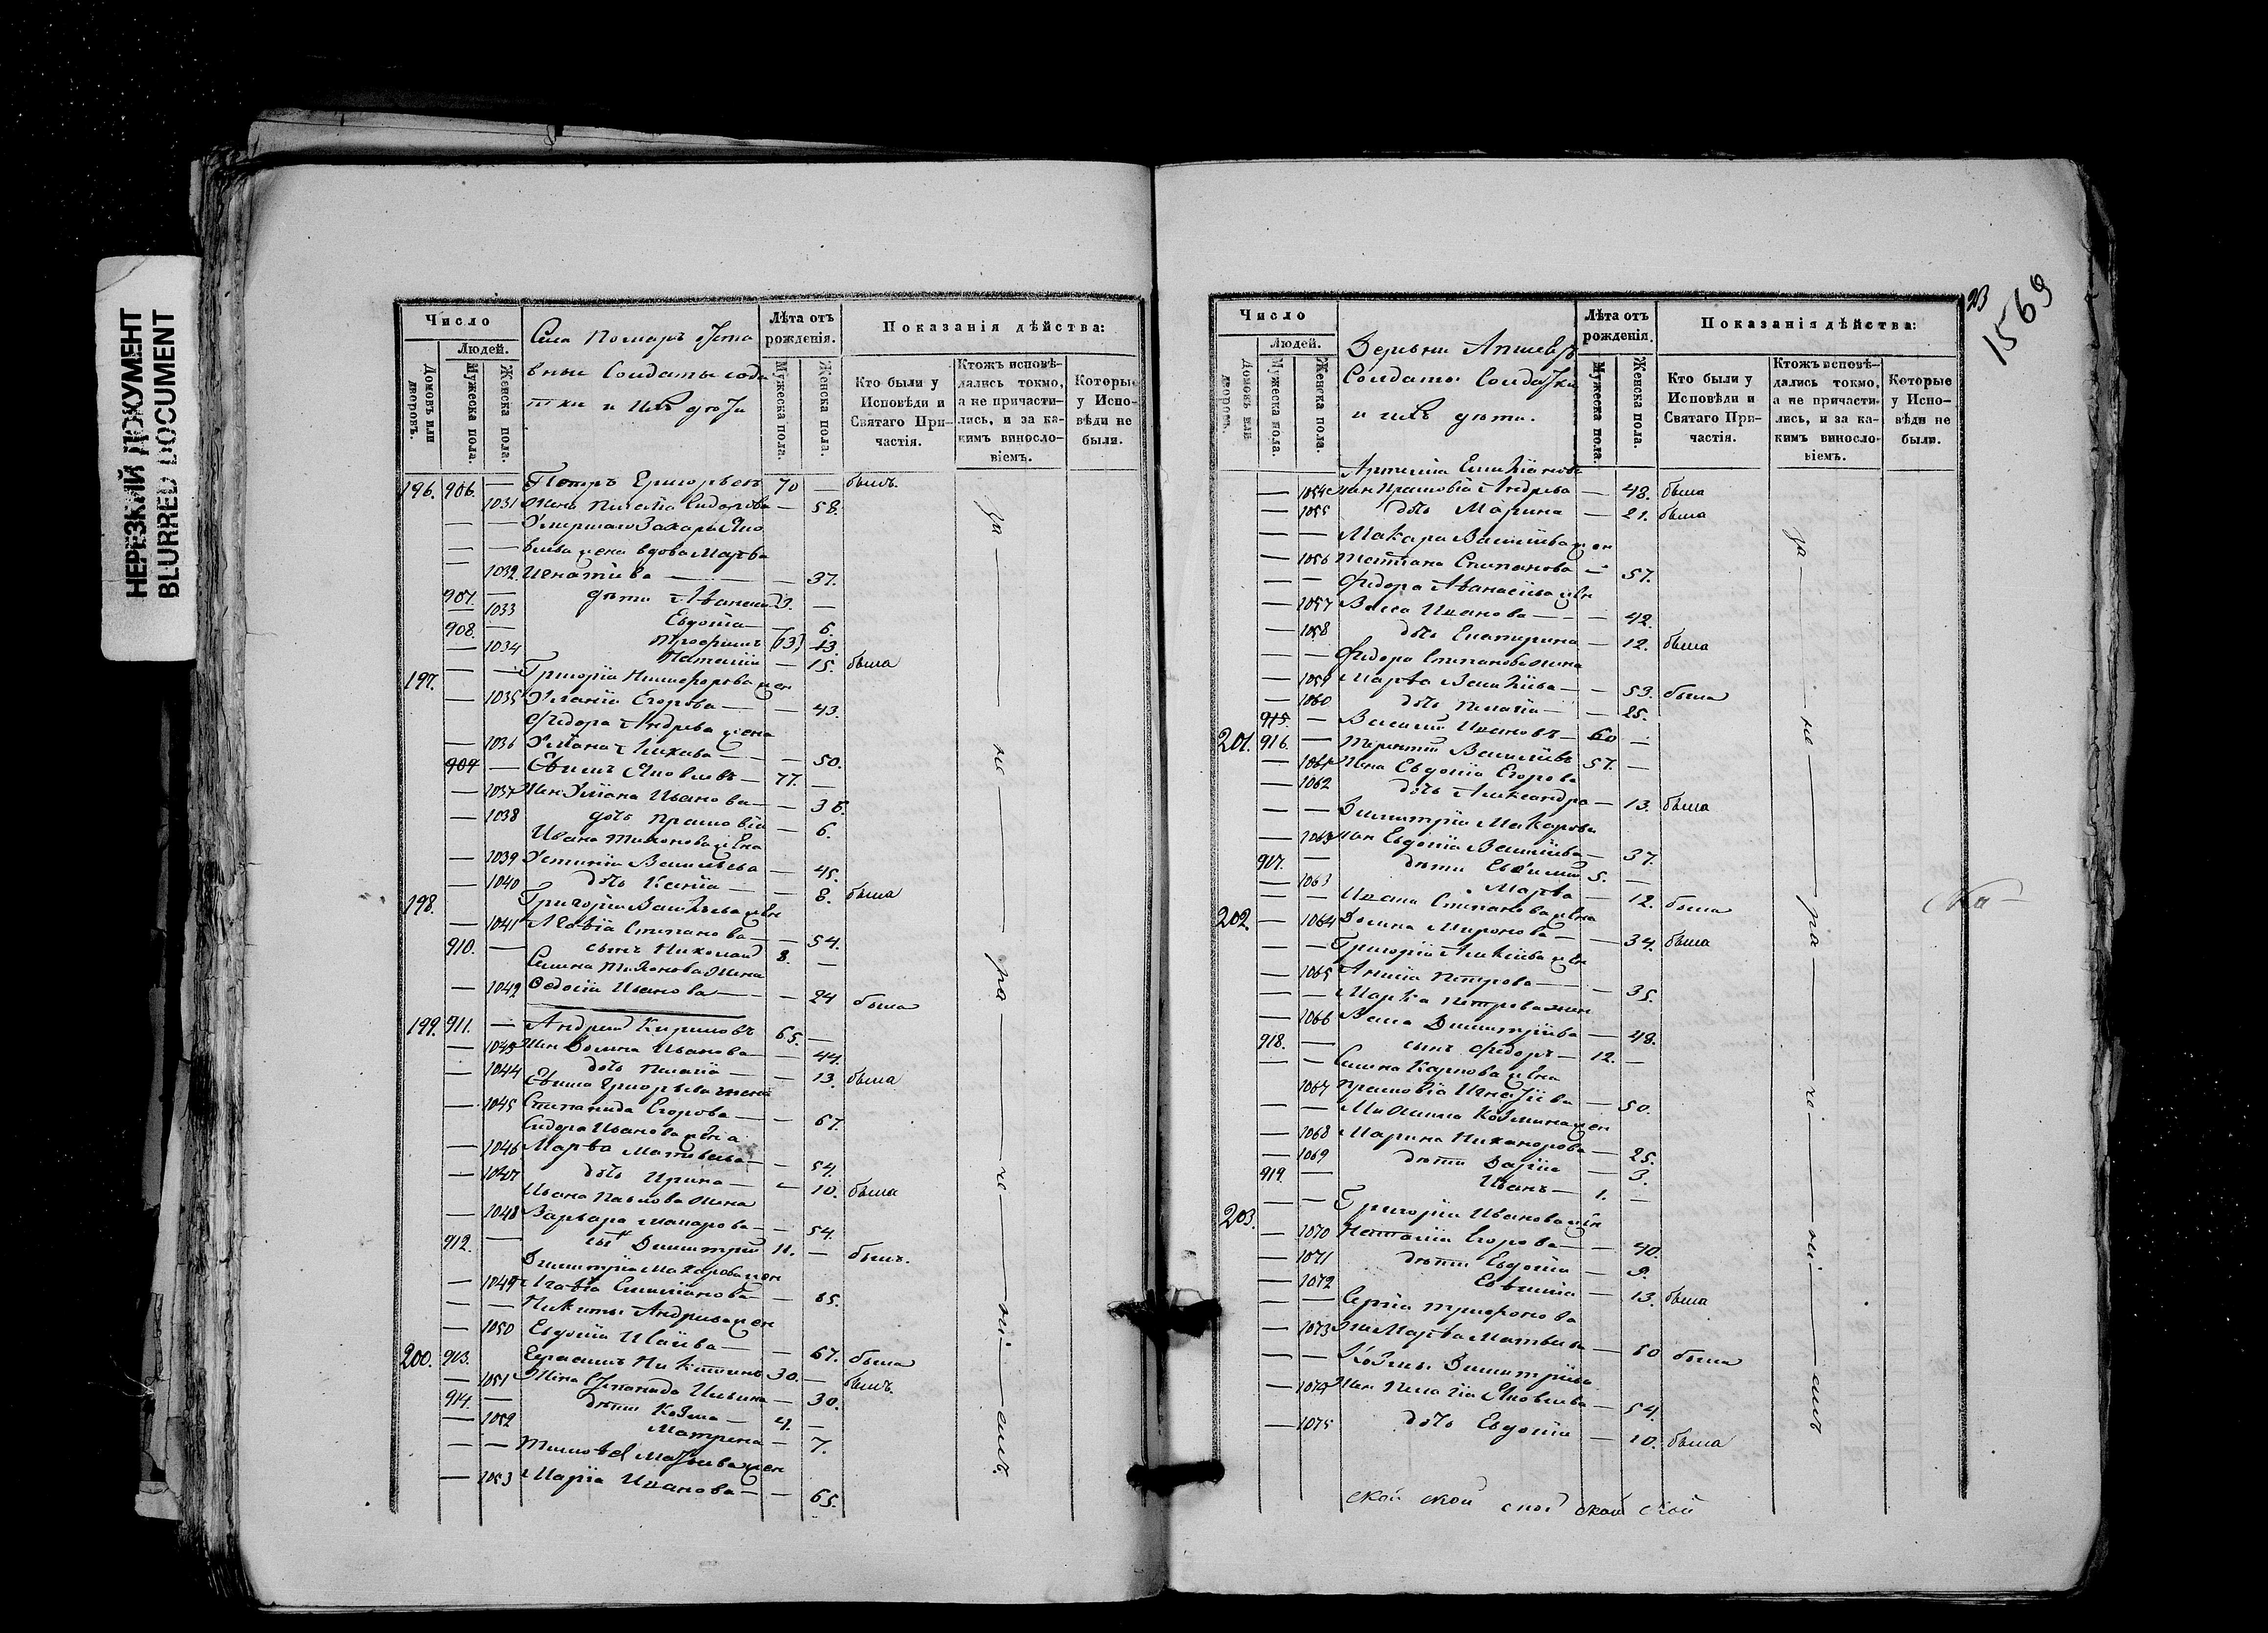 НЕРЕЗКИЙ ДОКУМЕНТ
BLURRED DOCUMENT
Число
Людей.
Домовъ или дворовъ.
Мужеска пола.
Женска пола.
Лѣта отъ рожденія.
Мужеска пола.
Женска пола.
Показанія дѣйства:
Кто были у Исповѣди и Святаго Причастія.
Ктожъ исповѣдались токмо, а не причастились, и за какимъ винословіемъ.
Которые у Исповѣди не были.
Солдаты солда
тки и ихъ дѣти
196. 906. — Петръ Григорьевъ 70 — былъ.
1031 Жена Пелагія Сидорова — 58.
— — Умершаго Захара Яко
— — влева жена вдова Марѳа
— 1032. Игнатіева — — 37.
907. — дѣти
— 1033 Евдокія — 6.
908. — Трофимъ (13) 13.
— 1034 Наталія — 15. была
197. — — Григорія Никифорова жен
— 1035 Егорова — — 43.
Ѳедора Андреева жена
— 1036 — — 50.
909 — Ефимъ Яковлевъ — 77. —
— 1037 Жен Ульяна Иванова — — 36.
— 1038 дочь Прасковія — 6.
Ивана Тихонова жена
— 1039 Устинія Васильева — 45.
— 1040 дочь Ксенія — — 8. была
198. Григорія Васильева жена
— 1041 Агафія Степанова — — 54.
910. — сынъ Николай 8. —
Семена Тихонова жена
— 1042 Ѳедосія Иванова — — 24 была
199. 911. — Андрей Кириловъ 65. —
— 1043 Жен Домна Иванова — — 44.
— 1044 дочь Пелагія — — 13. была
Ефима Григорьева жена
— 1045 Степанида Егорова — — 67.
Сидора Иванова жена
— 1046 Марѳа Матвѣева — — 54.
— 1047 дочь Ирина — — 10. была
Ивана Павлова жена
— 1048 Варвара Макарова — — 54.
912. — сынъ Димитрій 11. — былъ.
Димитрія Макарова жен
— 1049 Агафія Емиліанова — — 85.
— — Никиты Андреева жен
— 1050 Евдокія — — 67. была
200. 913. Герасимъ Никитинъ 30. — былъ.
— 1051 Жена Степанида Ильина — 30.
914. — дѣти Козма — 4. —
— 1052 Матрена — 7.
— — Тимофея Матвѣева жен
— 1053 Марія Иванова — — 65.
за — не — ра — че — ні — емъ.
23
1569
Число
Людей.
Домовъ или дворовъ.
Мужеска пола.
Женска пола.
Деревни
Солдаты Солдатки
и ихъ дѣти.
Лѣта отъ рожденія.
Мужеска пола.
Женска пола.
Показанія дѣйства:
Кто были у Исповѣди и Святаго Причастія.
Ктожъ исповѣдались токмо, а не причастились, и за какимъ винословіемъ.
Которые у Исповѣди не были.
Артемія Емиліанова
— 1054 жен Прасковія Андреева — 48. была
— 1055 дочь Марина — 21. была
— — Макара Васильева жен
— 1056 Татіана Степанова — 57.
— — Ѳедора Аѳанасіева жен
— 1057 Васса Иванова — — 42.
— 1058 дочь Екатерина — 12. была
— — Ѳедора Степанова жена
— 1059 Марѳа Васильева — — 53. была
— 1060 дочь Пелагія — — 25.
915. — Василій Ивановъ — 60 —
201. 916. — Терентій Васильевъ 57. —
— 1061 Жена Евдокія Егорова
— 1062 дочь Александра — 13. была
— — Димитрія Макарова
— 1063 жен Евдокія Васильева — 37.
917. — дѣти Евѳимій 5. —
— 1063 Марѳа — 12. была
— — Ивана Степанова жена
202. — 1064 Домна Миронова — — 34. была
— — Григорія Алексѣева жен
— 1065 Петрова — — 35.
— — Марка Петрова жен
— 1066 Васса Димитріева — 48.
918. — сынъ Ѳедоръ — 12. —
— — Семена Карпова жена
1067 Прасковія Игнатіева — 50.
— — Михаила Козмина жен
— 1068 Марина Никанорова — 25.
— 1069 дѣти Дарія — 3.
919. — Иванъ — 1. —
203. — — Григорія Иванова жен
— 1070 Наталія Егорова — — 40.
— 1071 дѣти Евдокія — 9.
— 1072 Евѳимія — 13. была
— — Сергія Трифонова
— 1073 жен Марѳа Матвѣева — 60 была
— — Козмы Димитріева
— 1074 Жен Пелагія Яковлева — 54.
— 1075 дочь Евдокія — 10. была
за — не — ра — че — ні — емъ
ской ской ской ской ской